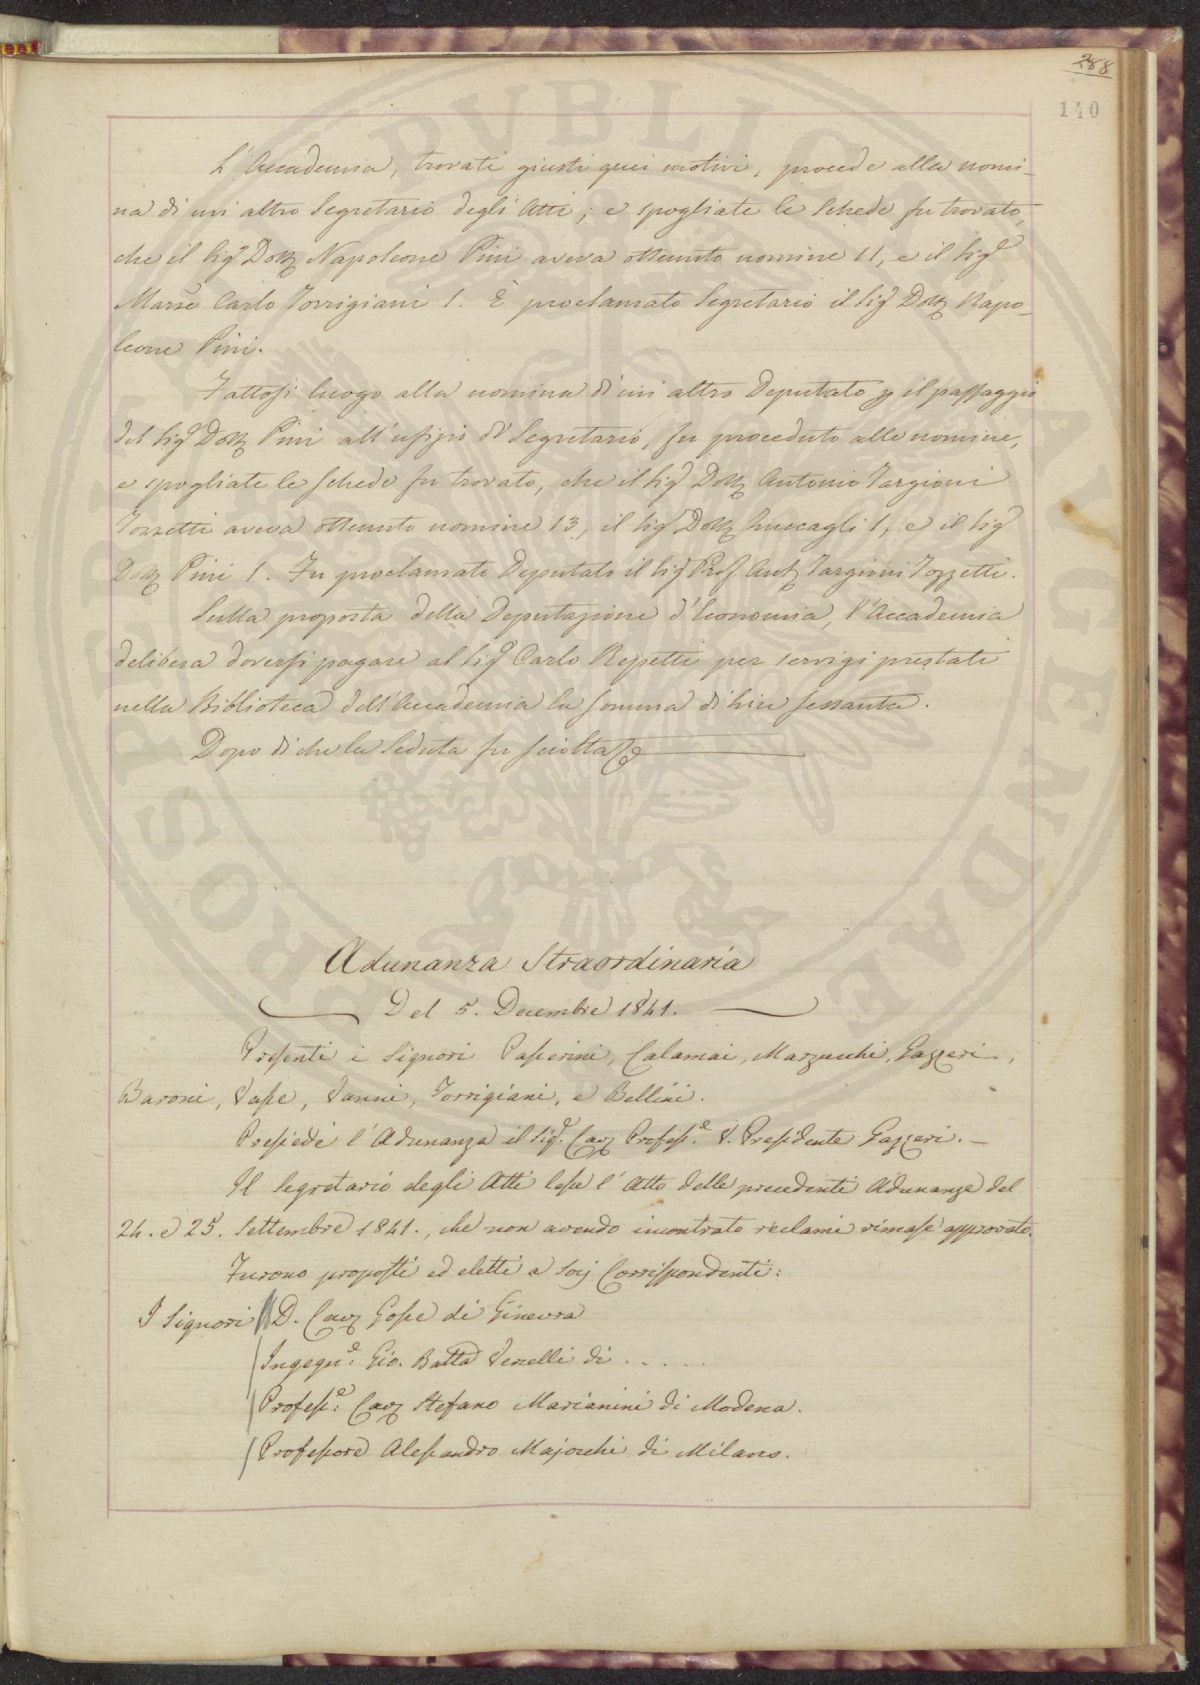 288
140
L'Accademia, trovati giusti quei motivi, procede alla nomi-
na di un'altro Segretario degli Atti; e spogliate le schede fu trovato,
che il Sigr Dottr Napoleone Pini aveva ottenuto nomine 11, e il Sigr
Marse Carlo Torrigiani 1. È proclamato Segretario il Sigr Dottr Napo-
leone Pini.
Fattosi luogo alla nomina di un altro Deputato p il passaggio
del Sigr Dottr Pini all'ufizio di Segretario, fu proceduto alle nomine,
e spogliate le schede fu trovato, che il Sigr Dottr Antonio Targioni
Tozzetti aveva ottenuto nomine 13, il Sigr Dottr 1, e il Sigr
Dottr Pini 1. Fu proclamato Deputato il Sigr Prof. Antº Targioni Tozzetti.
Sulla proposta della Deputazione d'Economia, l'Accademia
delibera doversi pagare al Sigr Carlo Repetti per servigi prestati
nella Biblioteca dell'Accademia la somma di Lire sessanta.
Dopo di che la Seduta fu sciolta
Adunanza Straordinaria
Del 5. Decembre 1841.
Presenti i Signori Paserini, Calamai, Marzucchi, Gazzeri,
Baroni, Vase, Vanni, Torrigiani, e Bellini.
Presiede l'Adunanza il Sigr. Cavr Profess.e V. Presidente Gazzeri. -
Il Segretario degli Atti lesse l'Atto delle precedenti Adunanze del
24. e 25. Settembre 1841., che non avendo incontrato reclami rimase approvato.
Furono proposti ed eletti a Socj Corrispondenti:
I Signori D. Cavr Gosse di Ginevra
Ingegn.e Gio. Batta Vercelli di . . . . .
Profess.e Cavr Stefano Marianini di Modena.
Professore Alessandro Majocchi di Milano.
PROSPERITATI PVBLICAE AVGENDAE